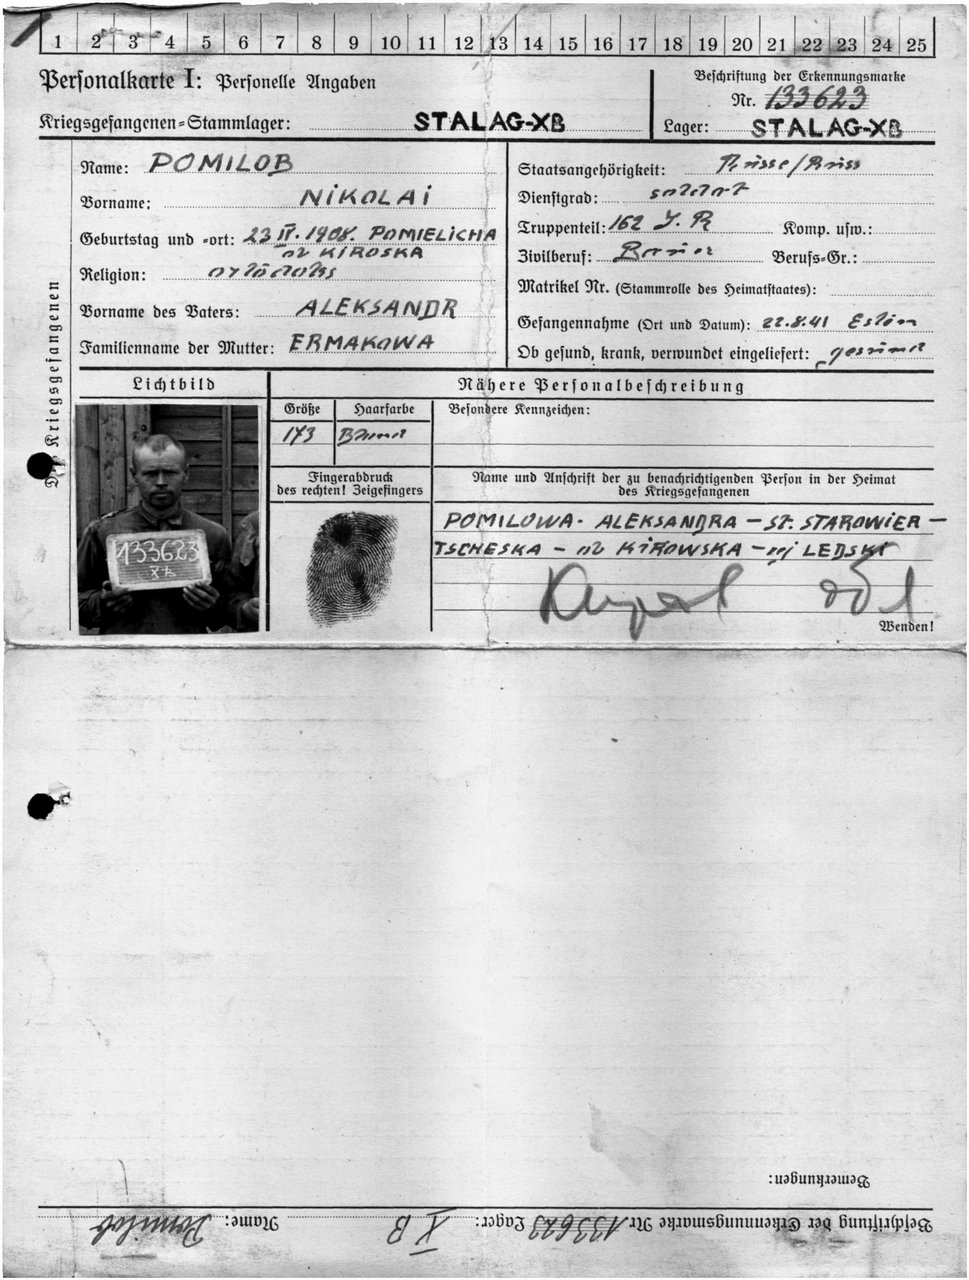 1 2 3 4 5 6 7 8 9 10 11 12 13 14 15 16 17 18 19 20 21 22 23 24 25
Personalkarte I: Personelle Angaben
Kriegsgefangenen=Stammlager: STALAG-XB
Beschriftung der Erkennungsmarke
Nr. 133623
Lager: STALAG-XB
Des Kriegsgefangenen
Name: POMILOB
Vorname: NIKOLAI
Geburtstag und =ort: 23 IV. 1908. POMIELICHA
KIROSKA
Religion:
Vorname des Vaters: ALEKSANDR
Familienname der Mutter: ERMAKOWA
Staatsangehörigkeit: Russe/Russ
Dienstgrad: soldat
Truppenteil: 162 J. R Komp. usw.:
Zivilberuf: Berufs=Gr.:
Matrikel Nr. (Stammrolle des Heimatstaates):
Gefangennahme (Ort und Datum): 22.8.41
Ob gesund, krank, verwundet eingeliefert: gesund
Lichtbild
133623
XB
Nähere Personalbeschreibung
Größe Haarfarbe Besondere Kennzeichen:
173
Fingerabdruck
des rechten! Zeigefingers
Name und Anschrift der zu benachrichtigenden Person in der Heimat
des Kriegsgefangenen
POMILOWA. ALEKSANDRA - ST. STAROWIER -
TSCHESKA - KIROWSKA - LEDSKI
Wenden!
Bemerkungen:
Beschriftung der Erkennungsmarke Nr. 133623 Lager: XB Name: Pomilob